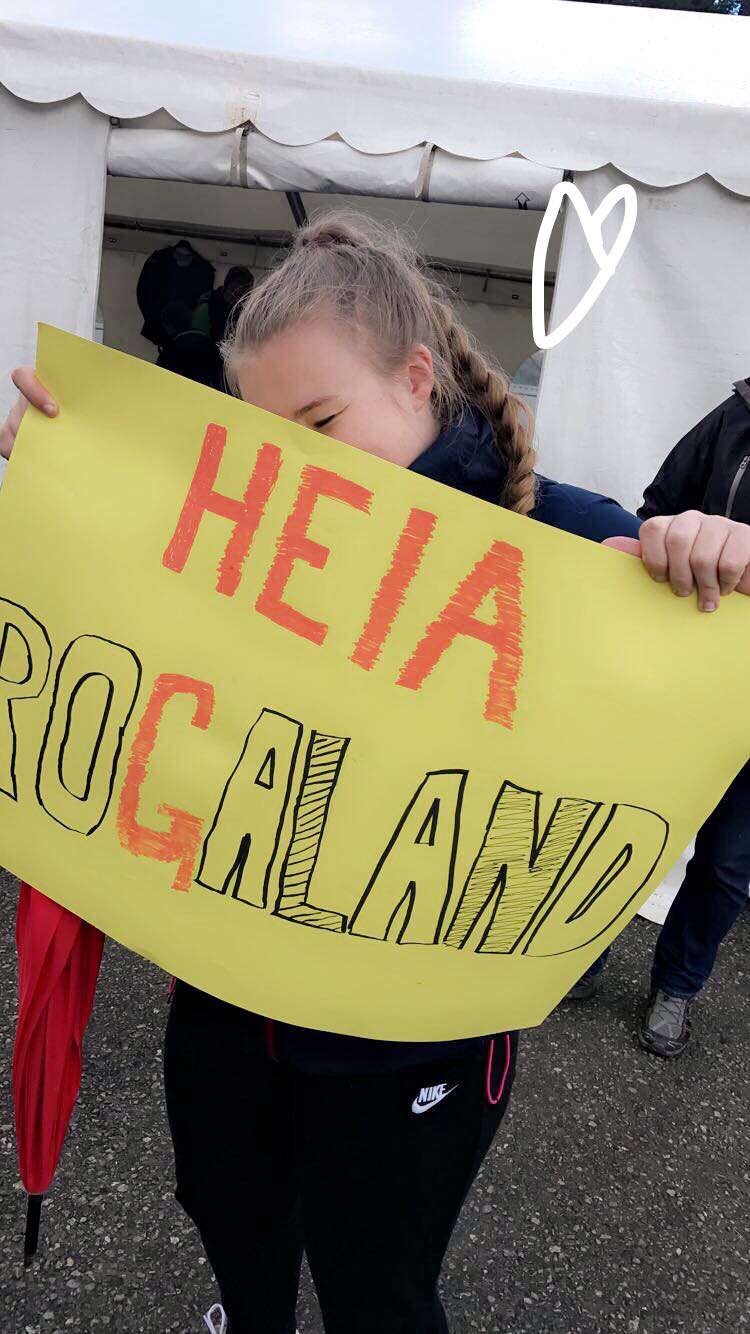 HEIA
ROGALAND
NIKE